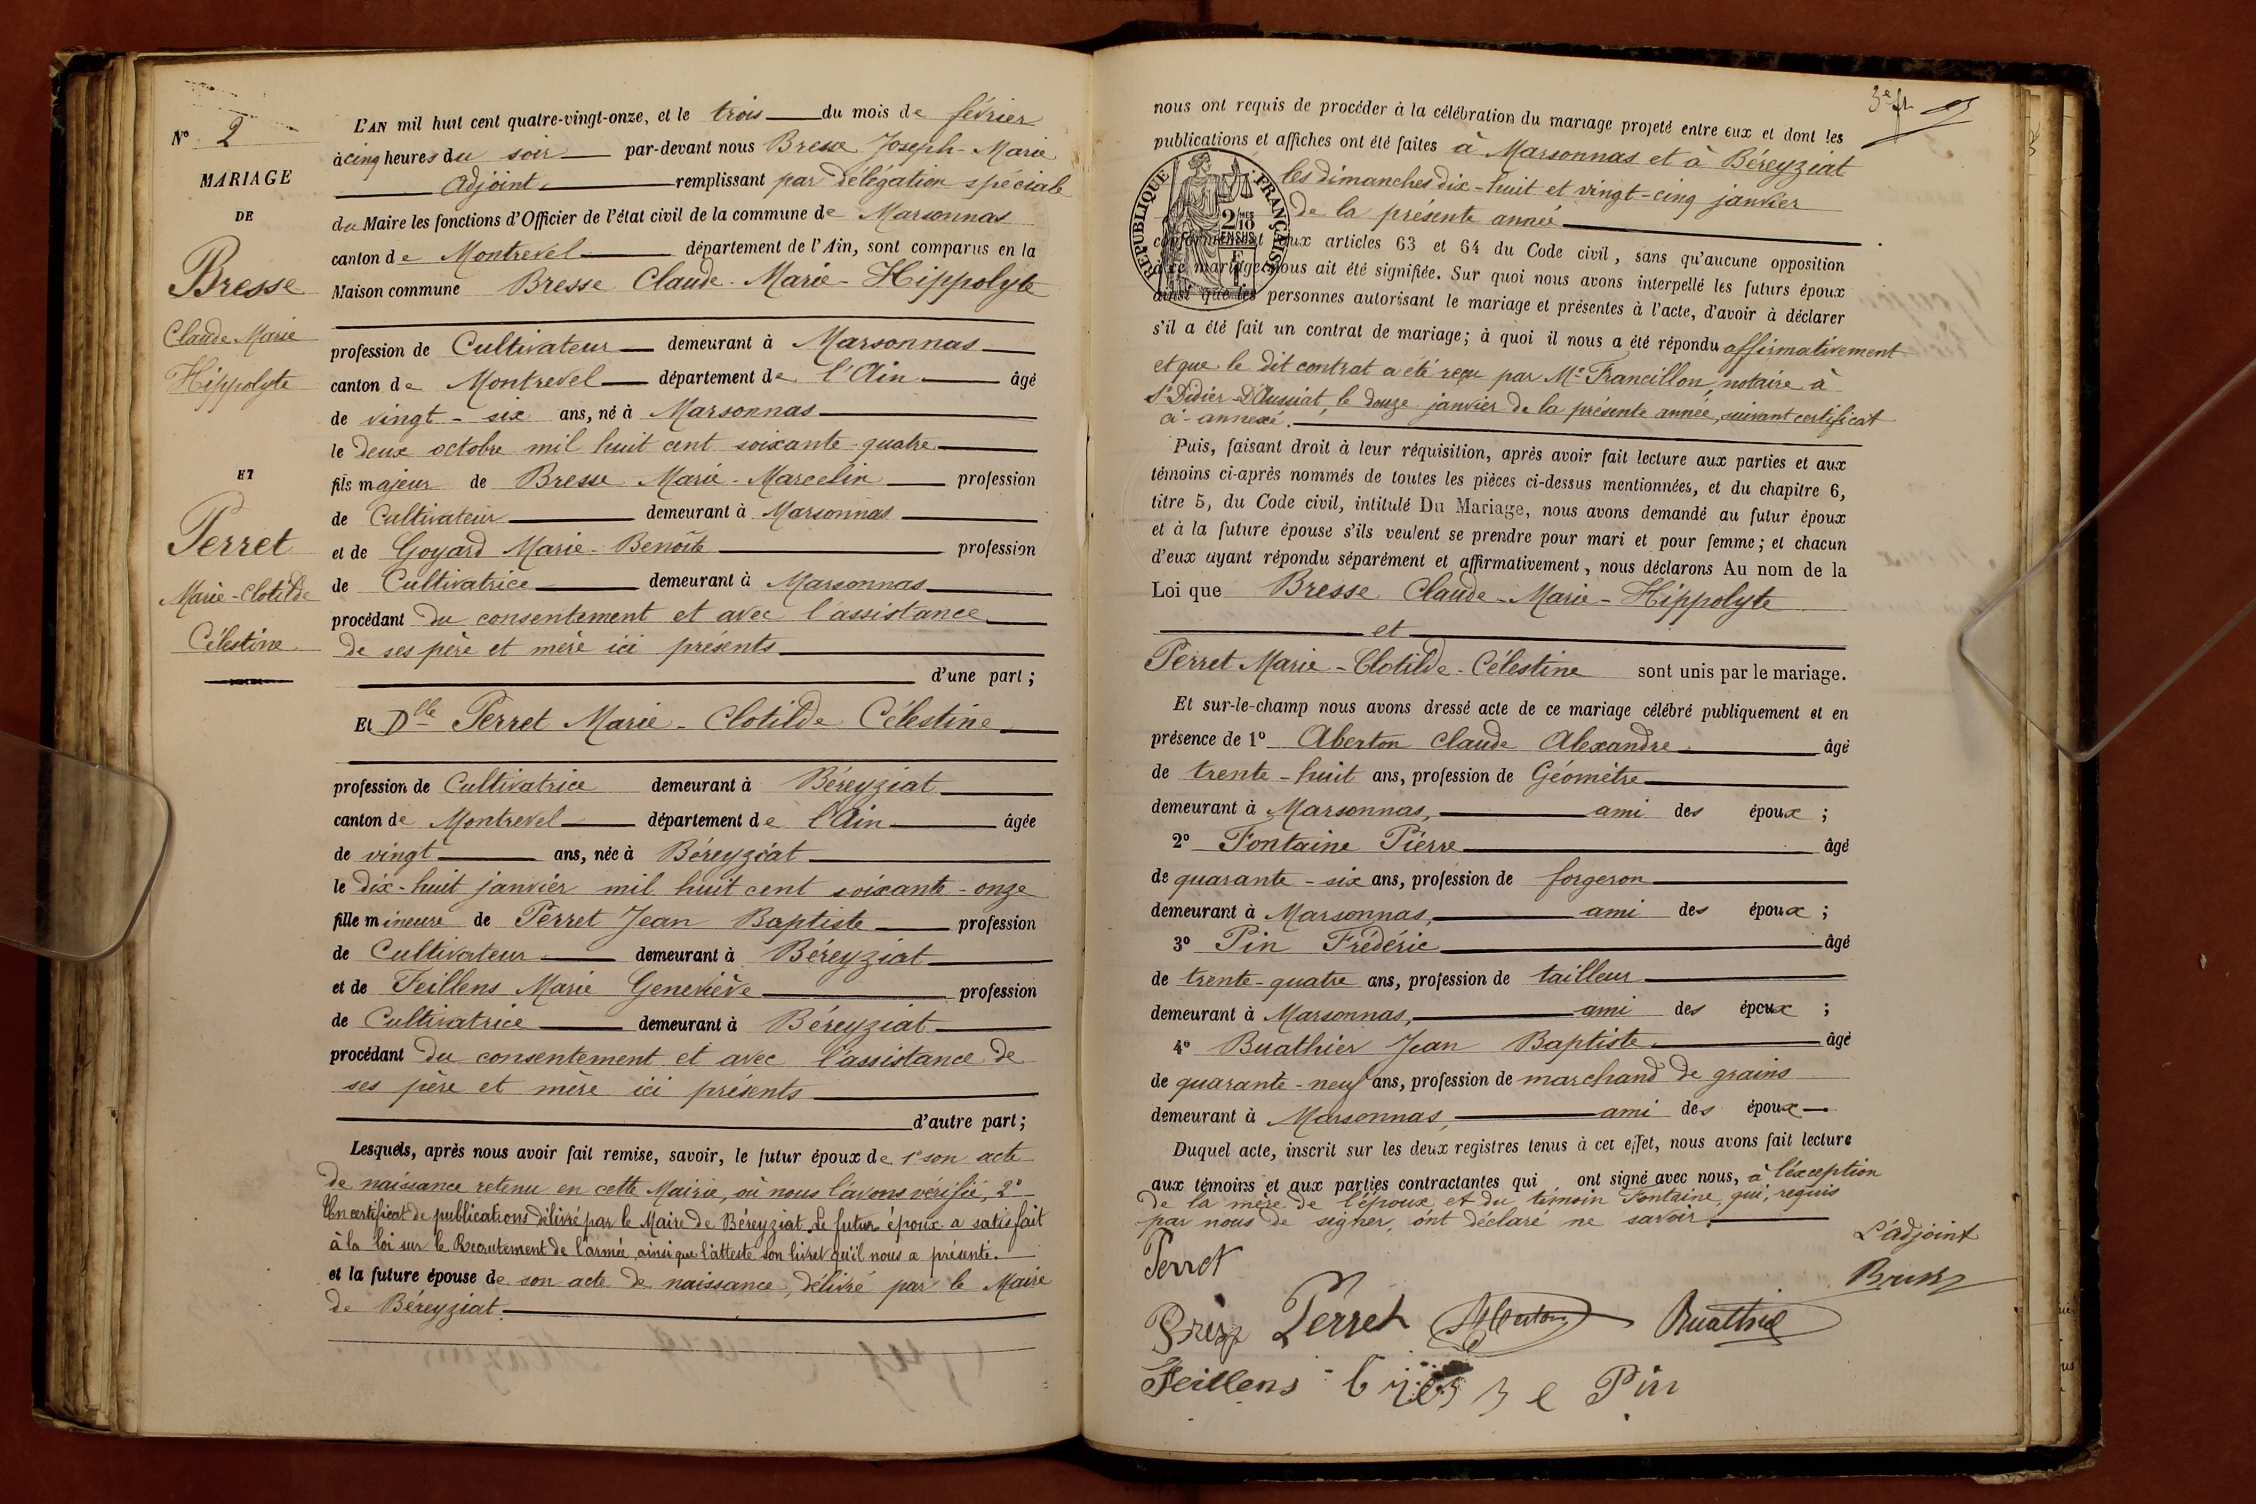 N° 2
MARIAGE
DE
Bresse
Claude Marie
Hippolyte
ET
Perret
Marie-Clotilde
Célestine
L'AN mil huit cent quatre-vingt-onze, et le trois du mois de février
à cinq heures du soir par-devant nous Bresse Joseph-Marie
Adjoint remplissant par délégation spéciale
du Maire les fonctions d'Officier de l'état civil de la commune de Marsonnas
canton de Montrevel département de l'Ain, sont comparus en la
Maison commune Bresse Claude-Marie-Hippolyte
profession de Cultivateur demeurant à Marsonnas
canton de Montrevel département de l'Ain âgé
de vingt-six ans, né à Marsonnas
le deux octobre mil huit cent soixante-quatre
fils majeur de Bresse Marie-Marcelin profession
de Cultivateur demeurant à Marsonnas
et de Goyard Marie-Benoîte profession
de Cultivatrice demeurant à Marsonnas
procédant du consentement et avec l'assistance
de ses père et mère ici présents
d'une part ;
Et Dlle Perret Marie-Clotilde Célestine
profession de Cultivatrice demeurant à Béreyziat
canton de Montrevel département de l'Ain âgée
de vingt ans, née à Béreyziat
le dix-huit janvier mil huit cent soixante-onze
fille mineure de Perret Jean Baptiste profession
de Cultivateur demeurant à Béreyziat
et de Feillens Marie Geneviève profession
de Cultivatrice demeurant à Béreyziat
procédant du consentement et avec l'assistance de
ses père et mère ici présents
d'autre part ;
Lesquels, après nous avoir fait remise, savoir, le futur époux de 1° son acte
de naissance retenu en cette Mairie, où nous l'avons vérifié, 2°
Un certificat de publications délivré par le Maire de Béreyziat. Le futur époux a satisfait
à la loi sur le Recrutement de l'armée ainsi que l'atteste son livret qu'il nous a présenté.
et la future épouse de son acte de naissance, délivré par le Maire
de Béreyziat
3e ft
nous ont requis de procéder à la célébration du mariage projeté entre eux et dont les
publications et affiches ont été faites à Marsonnas et à Béreyziat
les dimanches dix-huit et vingt-cinq janvier
de la présente année
RÉPUBLIQUE FRANÇAISE
2 MES 10
EN SUS
conformément aux articles 63 et 64 du Code civil, sans qu'aucune opposition
à ce mariage nous ait été signifiée. Sur quoi nous avons interpellé les futurs époux
ainsi que les personnes autorisant le mariage et présentes à l'acte, d'avoir à déclarer
s'il a été fait un contrat de mariage ; à quoi il nous a été répondu affirmativement
et que le dit contrat a été reçu par Me Francillon, notaire à
St Didier-D'Aussiat, le douze janvier de la présente année, suivant certificat
ci-annexé.
Puis, faisant droit à leur réquisition, après avoir fait lecture aux parties et aux
témoins ci-après nommés de toutes les pièces ci-dessus mentionnées, et du chapitre 6,
titre 5, du Code civil, intitulé Du Mariage, nous avons demandé au futur époux
et à la future épouse s'ils veulent se prendre pour mari et pour femme ; et chacun
d'eux ayant répondu séparément et affirmativement, nous déclarons Au nom de la
Loi que Bresse Claude-Marie-Hippolyte
et
Perret Marie-Clotilde-Célestine sont unis par le mariage.
Et sur-le-champ nous avons dressé acte de ce mariage célébré publiquement et en
présence de 1° Aberton Claude Alexandre âgé
de trente-huit ans, profession de Géomètre
demeurant à Marsonnas, ami des époux ;
2° Fontaine Pierre âgé
de quarante-six ans, profession de forgeron
demeurant à Marsonnas, ami des époux ;
3° Pin Frédéric âgé
de trente-quatre ans, profession de tailleur
demeurant à Marsonnas, ami des époux ;
4° Buathier Jean Baptiste âgé
de quarante-neuf ans, profession de marchand de grains
demeurant à Marsonnas, ami des époux
Duquel acte, inscrit sur les deux registres tenus à cet effet, nous avons fait lecture
aux témoins et aux parties contractantes qui ont signé avec nous, à l'exception
de la mère de l'époux et du témoin Fontaine, qui, requis
par nous de signer, ont déclaré ne savoir.
L'adjoint
Perret
Perret Buathier
Feillens Pin